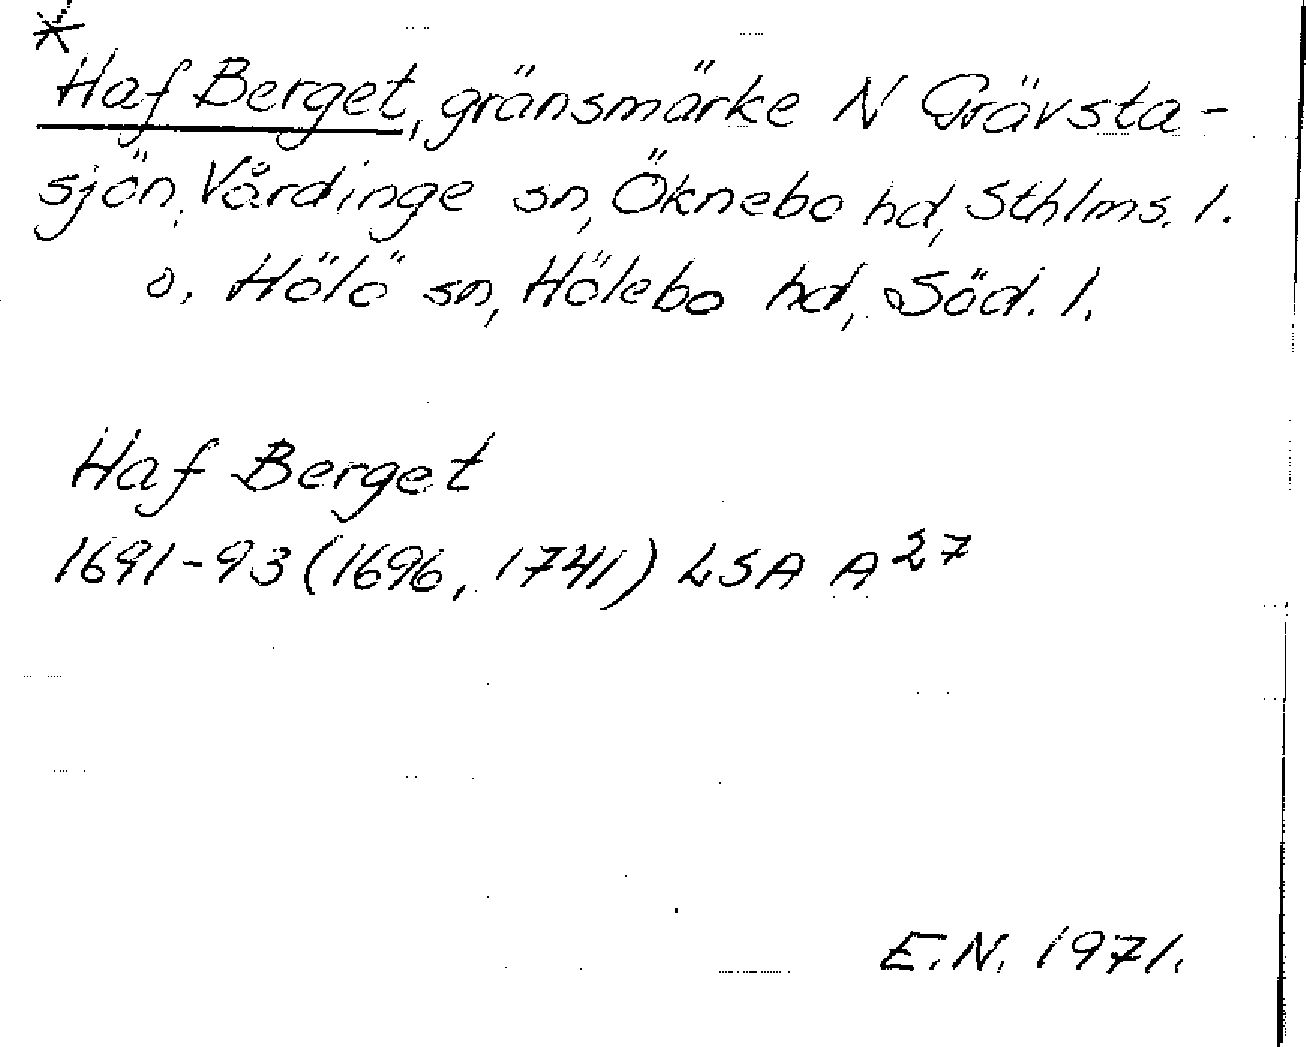 *
Haf Berget, gränsmärke N Grävsta-
sjön, Vårdinge sn, Öknebo hd, Sthlms. l.
o. Hölö sn, Hölebo hd, Söd. l.
Haf Berget
1691-93 (1696, 1741) LSA A 27
E.N. 1971.